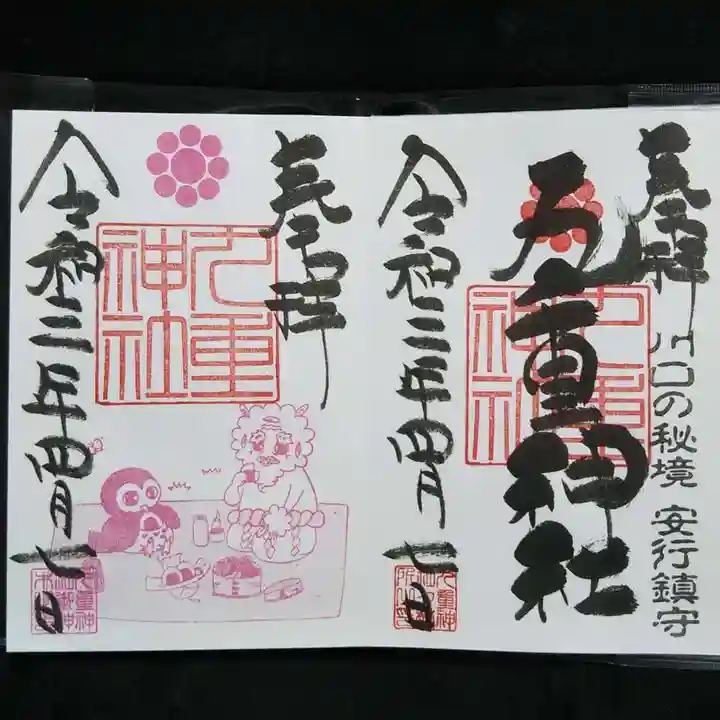 奉拝
川口の秘境 安行鎮守
九重神社
九重神社
令和三年四月七日
奉拝
九重神社
令和三年四月七日